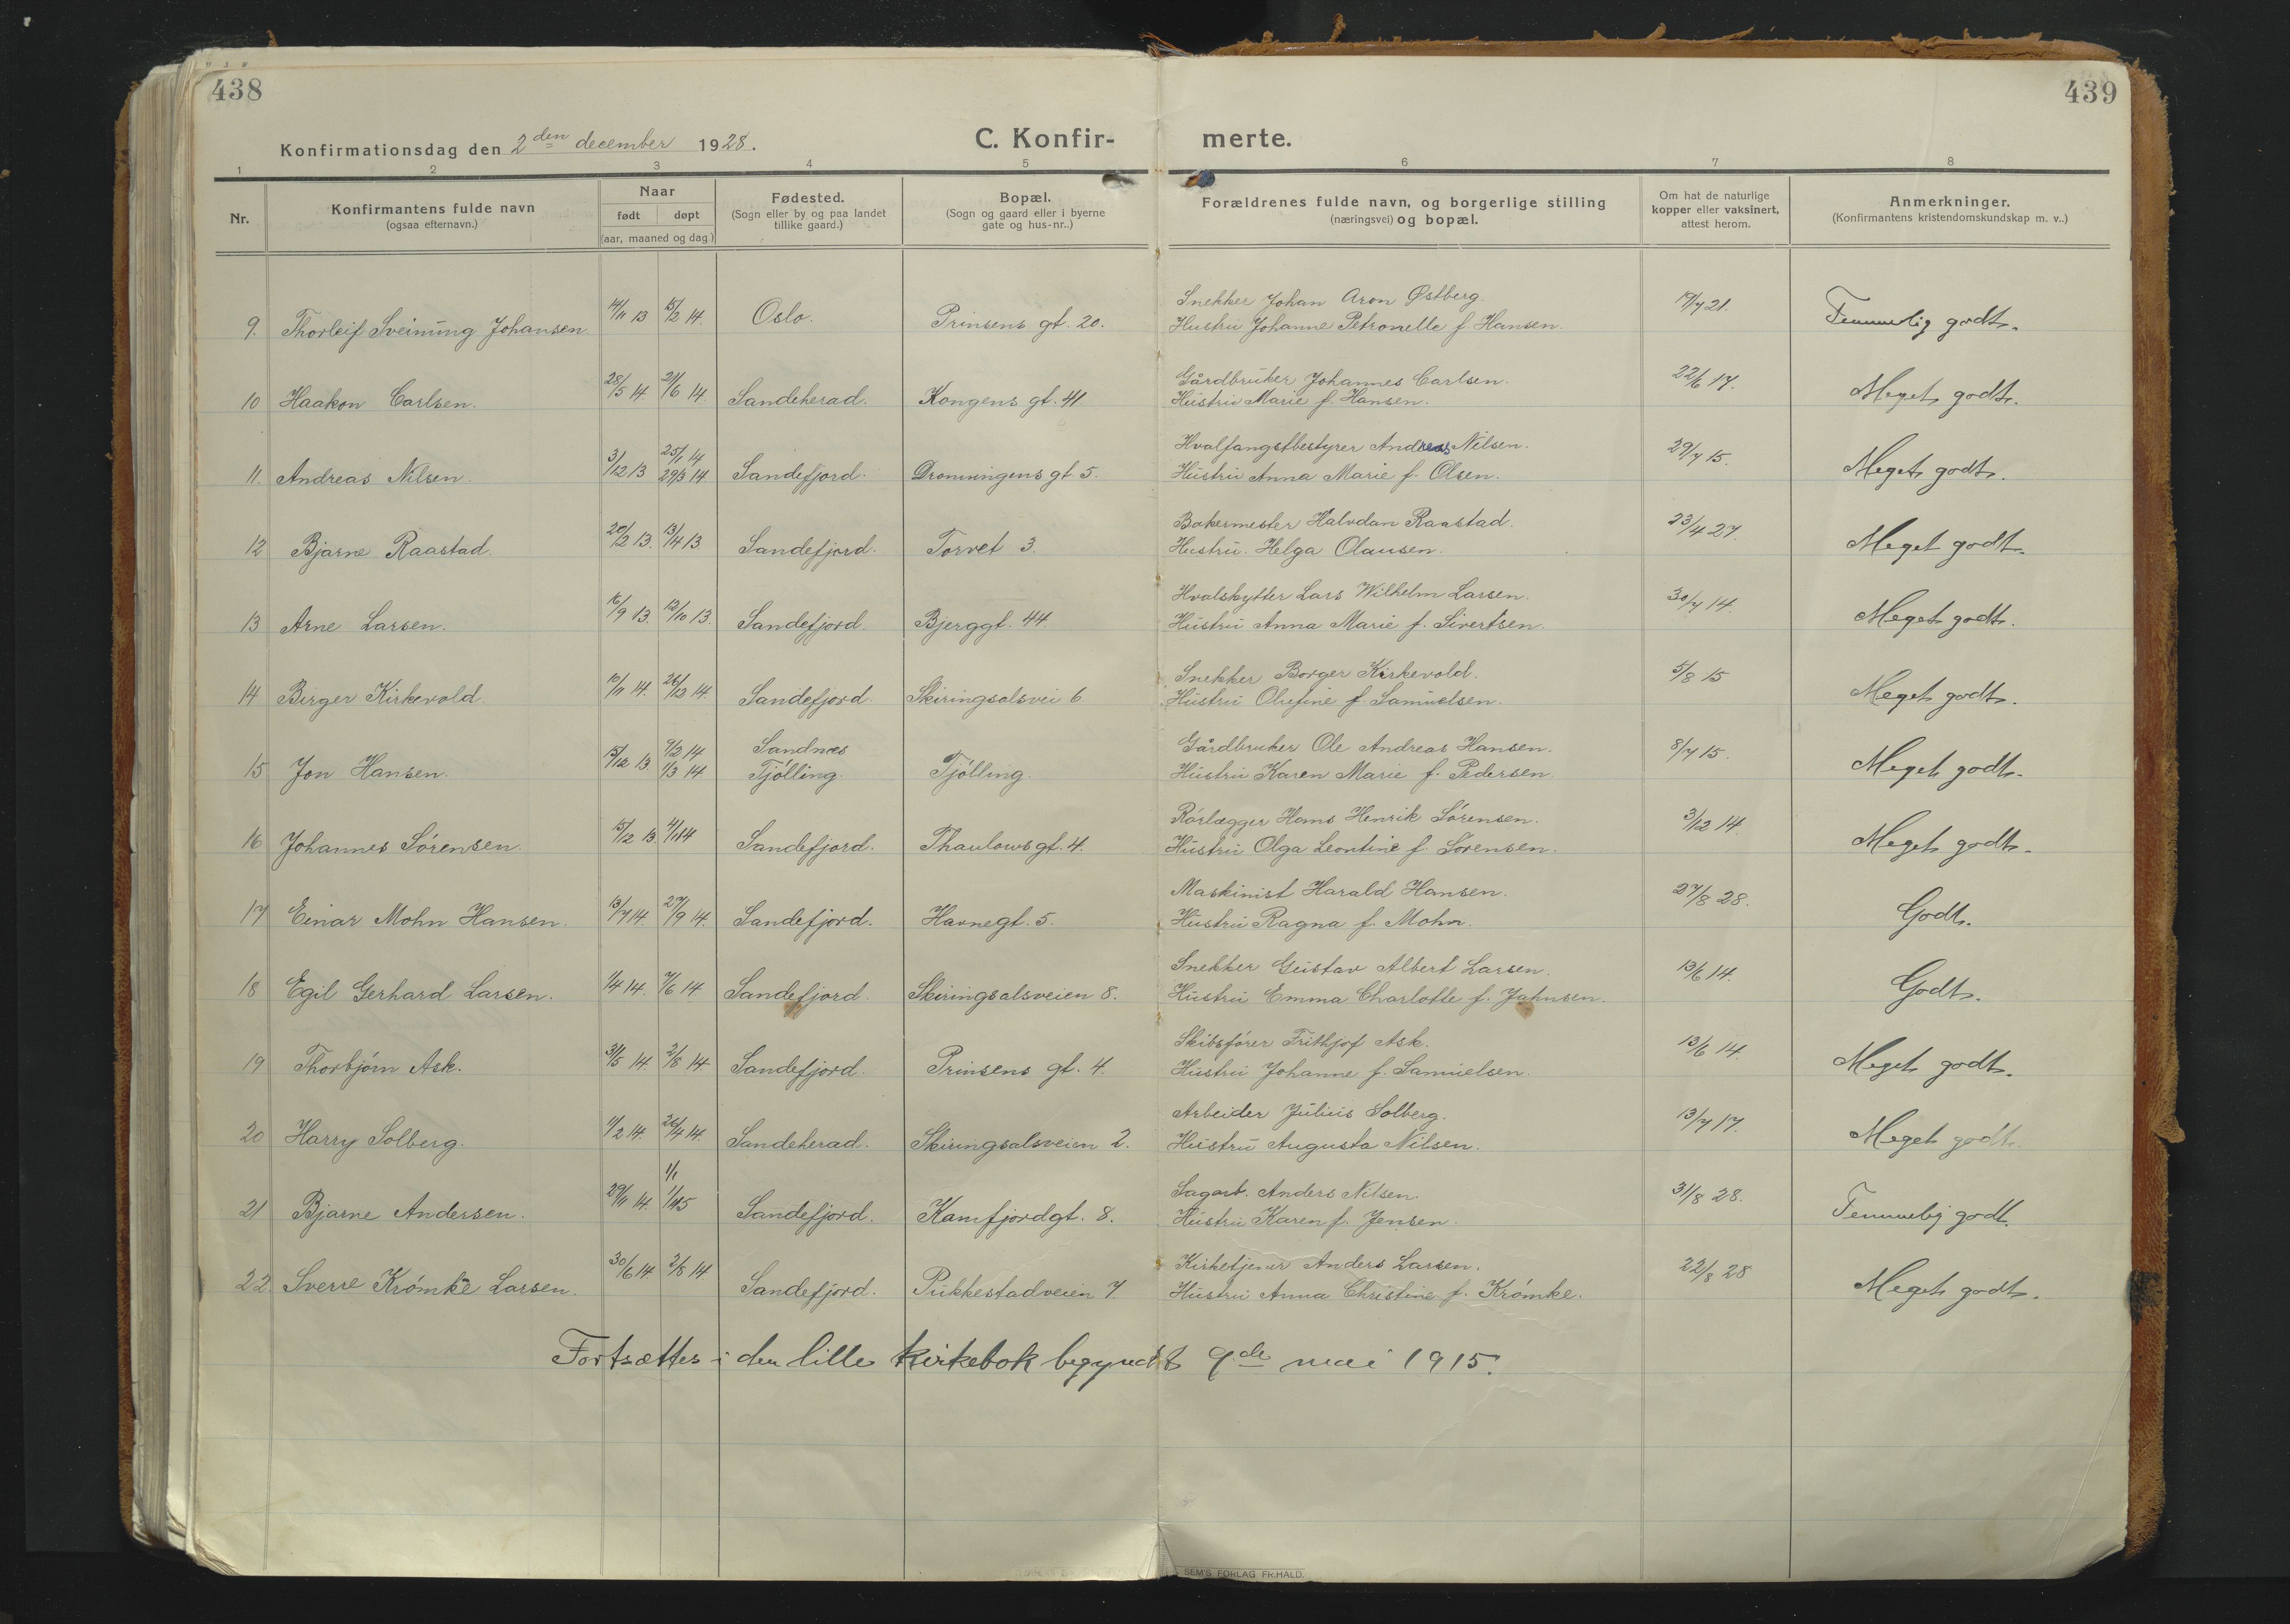 438
439
Konfirmationsdag den 2den december 1928.
C. Konfir-
merte.
1 2 3 4 5 6 7 8
Nr.
Konfirmantens fulde navn
(ogsaa efternavn.)
Naar
født døpt
(aar, maaned og dag)
Fødested.
(Sogn eller by og paa landet
tillike gaard.)
Bopæl.
(Sogn og gaard eller i byerne
gate og hus-nr..)
Forældrenes fulde navn, og borgerlige stilling
(næringsvei) og bopæl.
Om hat de naturlige
kopper eller vaksinert,
attest herom.
Anmerkninger.
(Konfirmantens kristendomskundskap m. v..)
Snekker Johan Aron Østberg.
9. Thorleif Sveinung Johansen. 14/11 13 15/2 14. Oslo. Prinsens gt. 20. Hustru Johanne Petronelle f. Hansen. 19/7 21. Temmelig godt.
Gårdbruker Johannes Carlsen.
10 Haakon Carlsen. 28/5 14 21/6 14. Sandeherad. Kongens gt. 41 Hustru Marie f. Hansen. 22/6 17. Meget godt.
25/1 14 Hvalfangstbestyrer Andreas Nilsen.
11. Andreas Nilsen. 3/12 13 29/3 14 Sandefjord. Dronningens gt 5. Hustru Anna Marie f. Olsen. 29/7 15. Meget godt.
Bakermester Halvdan Raastad.
12 Bjarne Raastad. 20/2 13. 13/4 13. Sandefjord. Torvet 3. Hustru Helga Olausen. 23/4 27. Meget godt.
Hvalskytter Lars Wilhelm Larsen.
13 Arne Larsen. 16/9 13. 12/10 13. Sandefjord. Bjerggt. 44. Hustru Anna Marie f. Sivertsen. 30/7 14. Meget godt.
Snekker Borger Kirkevold.
14 Birger Kirkevold. 10/11 14. 26/12 14. Sandefjord. Skiringsalsvei 6. Hustru Olufine f. Samuelsen. 5/8 15 Meget godt.
9/2 14 Sandnæs Gårdbruker Ole Andreas Hansen.
15 Jon Hansen. 15/12 13. 1/3 14 Tjölling. Tjölling. Hustru Karen Marie f. Pedersen. 8/7 15. Meget godt.
Rörlægger Hans Henrik Sörensen.
16 Johannes Sörensen. 15/12 13. 4/1 14 Sandefjord. Thaulowsgt. 4. Hustru Olga Leontine f. Sörensen. 3/12 14. Meget godt.
Maskinist Harald Hansen.
17 Einar Mohn Hansen. 13/7 14. 27/9 14. Sandefjord. Havnegt. 5. Hustru Ragna f. Mohn. 27/8 28. Godt.
Snekker Gustav Albert Larsen.
18 Egil Gerhard Larsen. 1/4 14. 7/6 14 Sandefjord. Skiringsalsveien 8. Hustru Emma Charlotte f. Jahnsen. 13/6 14. Godt.
Skibsförer Frithjof Ask.
19 Thorbjörn Ask. 31/5 14. 2/8 14 Sandefjord. Prinsens gt. 4. Hustru Johanne f. Samuelsen. 13/6 14. Meget godt.
Arbeider Julius Solberg.
20 Harry Solberg. 11/2 14. 26/4 14. Sandeherad. Skiringsalsveien 2. Hustru Augusta Nilsen. 13/7 17. Meget godt.
1/1 Sagarb. Anders Nilsen.
21 Bjarne Andersen. 29/11 14. 1/1 15 Sandefjord. Kamfjordgt. 8. Hustru Karen f. Jensen. 31/8 28. Temmelig godt.
Kirketjener Anders Larsen.
22. Sverre Krömke Larsen. 30/6 14. 2/8 14 Sandefjord. Pukkestadveien 7 Hustru Anna Christine f. Krömke. 22/8 28 Meget godt.
Fortsættes i den lille kirkebok begyndt 9de mai 1915.
SEM'S FORLAG FR.HALD.